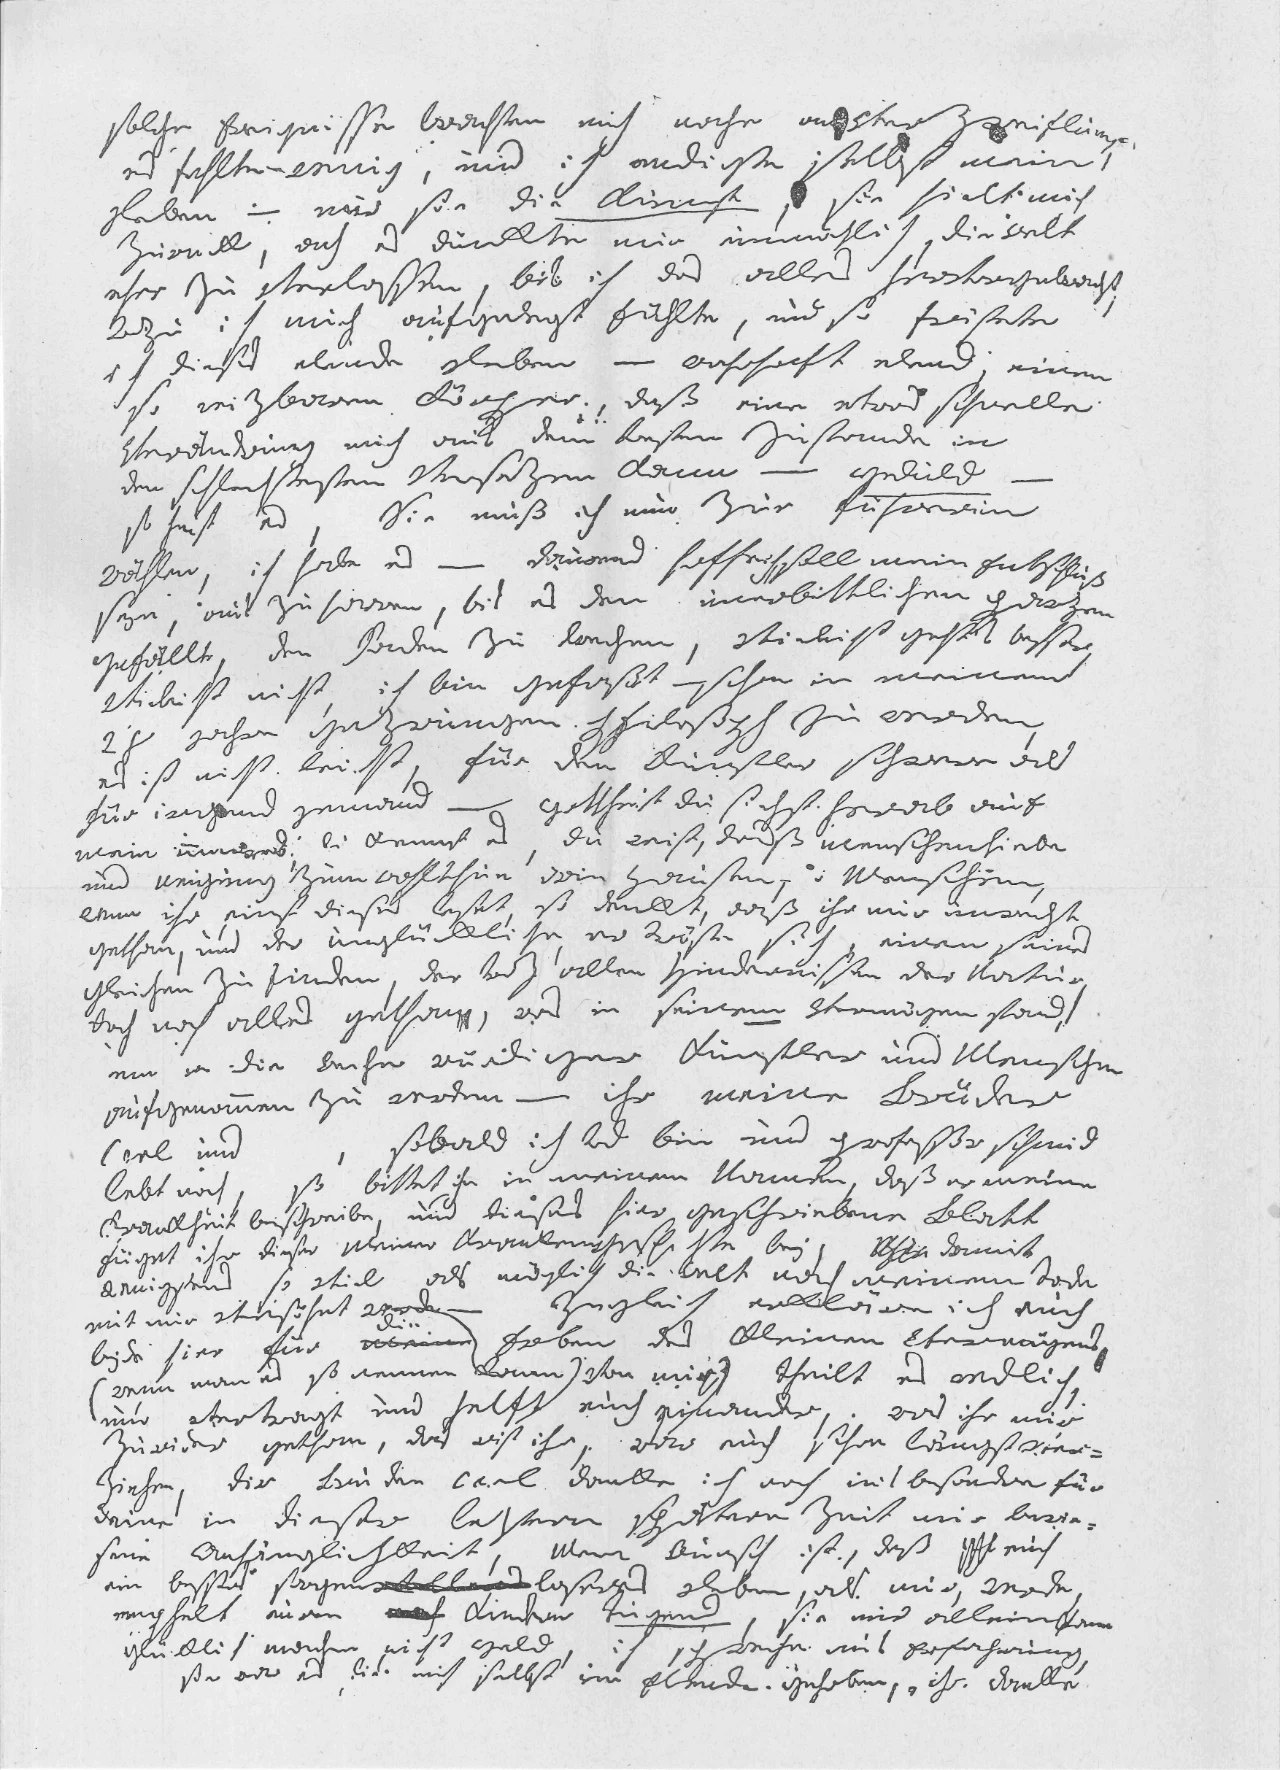 solche Ereignisse brachten mich nahe an Verzweiflung,
es fehlte wenig, und ich endigte selbst mein
Leben — nur sie die Kunst, sie hielt mich
zurück, ach es dünkte mir unmöglich, die Welt
eher zu verlassen, bis ich das alles hervorgebracht,
wozu ich mich aufgelegt fühlte, und so fristete
ich dieses elende Leben — wahrhaft elend; einen
so reizbaren Körper, daß eine etwas schnelle
Verändrung mich aus dem besten Zustande in
den schlechtesten versezen kann — Geduld —
so heist es, Sie muß ich nun zur führerin
wählen, ich habe es — dauernd hoffe ich, soll mein Entschluß
seyn, aus zu harren, bis es den unerbittlichen parzen
gefällt, den Faden zu brechen, vieleicht geht's besser,
vieleicht nicht, ich bin gefaßt — schon in meinem
28 Jahre gezwungen Philosoph zu werden,
es ist nicht leicht, für den Künstler schwerer als
für irgend jemand — gottheit du siehst herab auf
mein inneres; du kennst es, du weist, daß menschenliebe
und neigung zum wohlthun drin Hausen, o Menschen,
wenn ihr einst dieses leset, so denkt, daß ihr mir unrecht
gethan, und der unglückliche, er tröste sich, einen seines
gleichen zu finden, der troz allen Hindernissen der Natur,
doch noch alles gethan, was in seinem Vermögen stand,
um in die Reihe würdiger Künstler und Menschen
aufgenommen zu werden — ihr meine Brüder
Carl und , sobald ich tod bin und professor schmid
lebt noch, so bittet ihn in meinem Namen, daß er meine
Krankheit beschreibe, und dieses hier geschriebene Blatt
füget ihr dieser meiner Krankengeschichte bey, damit
wenigstens so viel als möglich die Welt nach meinem Tode
mit mir versöhnt werde — Zugleich erkläre ich euch
beyde hier für die Erben des kleinen Vermögens,
(wenn man es so nennen kann) von mir, theilt es redlich,
und vertragt und helft euch einander, was ihr mir
zuwider gethan, das wist ihr, war euch schon längst ver=
ziehen, dir Bruder Carl danke ich noch ins besondre für
deine in dieser leztern spätern Zeit mir bewie=
sene Anhänglichkeit, Mein Wunsch ist, daß euch
ein bessers sorgenloseres Leben, als mir, werde,
empfehlt euren Kindern Tugend, sie nur allein kann
glücklich machen, nicht geld, ich spreche aus Erfahrung,
sie war es, die mich selbst im Elende gehoben, ihr danke